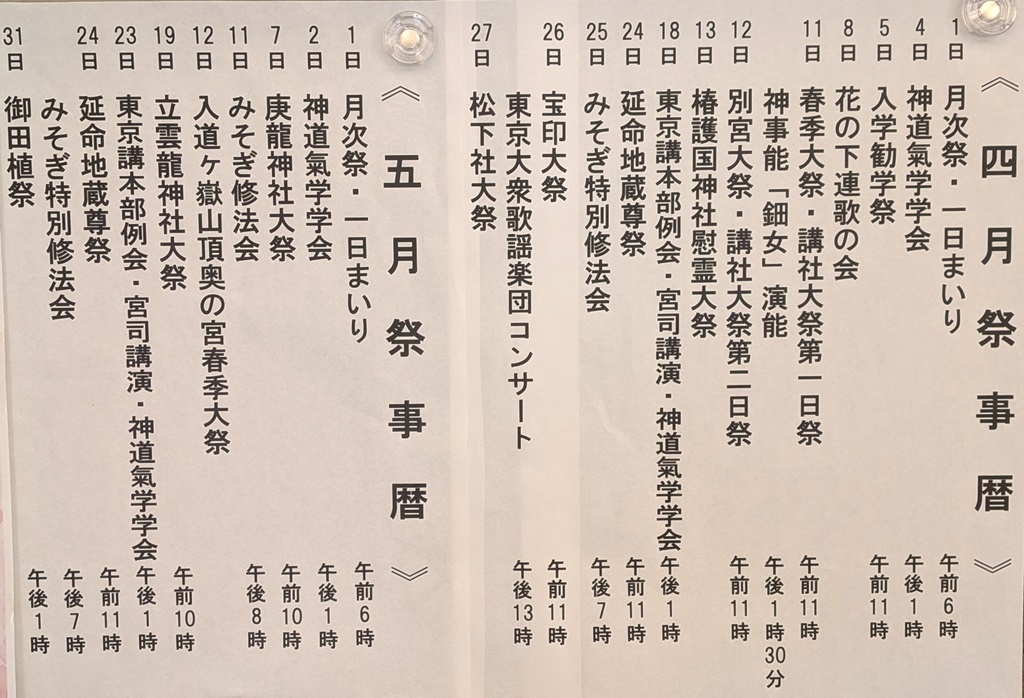 《 四月祭事暦 》
1日 月次祭・一日まいり 午前6時
4日 神道氣学学会 午後1時
5日 入学勧学祭 午前11時
8日 花の下連歌の会
11日 春季大祭・講社大祭第一日祭 午前11時
神事能「鈿女」演能 午後1時30分
12日 別宮大祭・講社大祭第二日祭 午前11時
13日 椿護国神社慰霊大祭
18日 東京講本部例会・宮司講演・神道氣学学会 午後1時
24日 延命地蔵尊祭 午前11時
25日 みそぎ特別修法会 午後7時
26日 宝印大祭 午前11時
東京大衆歌謡楽団コンサート 午後13時
27日 松下社大祭
《 五月祭事暦 》
1日 月次祭・一日まいり 午前6時
2日 神道氣学学会 午後1時
7日 庚龍神社大祭 午前10時
11日 みそぎ修法会 午後8時
12日 入道ヶ嶽山頂奥の宮春季大祭
19日 立雲龍神社大祭 午前10時
23日 東京講本部例会・宮司講演・神道氣学学会 午後1時
24日 延命地蔵尊祭 午前11時
みそぎ特別修法会 午後7時
31日 御田植祭 午後1時